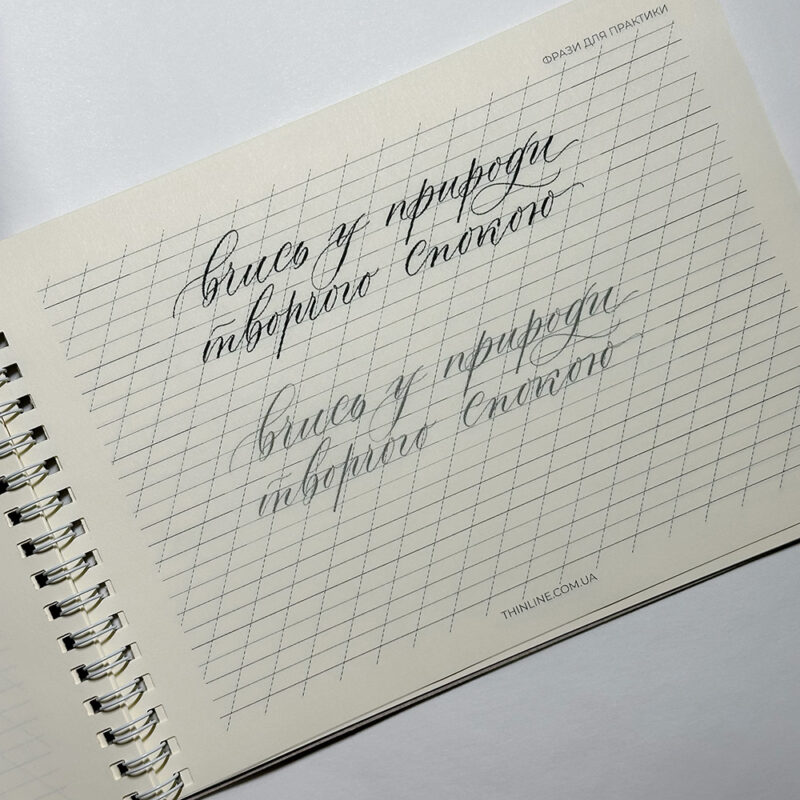 ФРАЗИ ДЛЯ ПРАКТИКИ
вчись у природи
творчого спокою
вчись у природи
творчого спокою
THINLINE.COM.UA